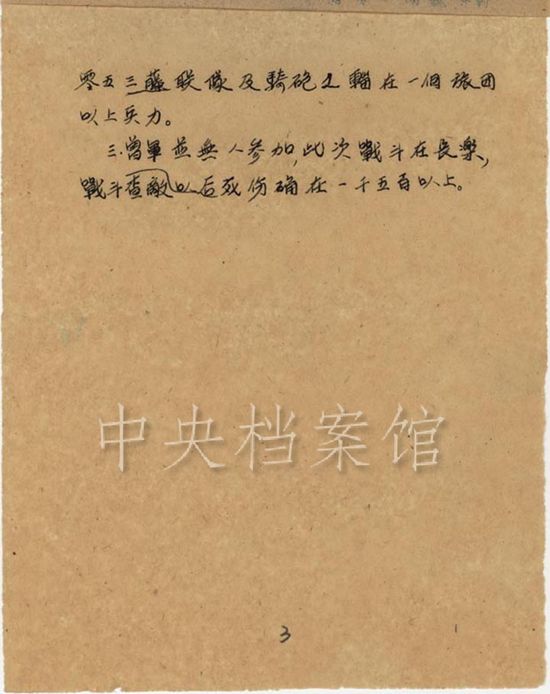 零五三藤联隊及騎砲工輜在一個旅团
以上兵力。
三.曾軍並無人参加,此次戰斗在長樂,
戰斗查敵以后死伤确在一千五百以上。
中央档案馆
3